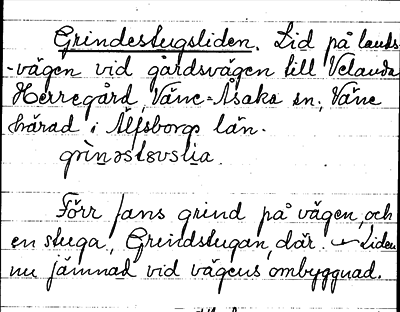 Grindestugsliden. Lid på lands-
-vägen vid gårdsvägen till Velanda
Herregård, Väne-Åsaka sn, Väne
härad i Älfsborgs län.
Förr fans grind på vägen, och
en stuga, Grindstugan, där. Liden
nu jämnad vid vägens ombyggnad.